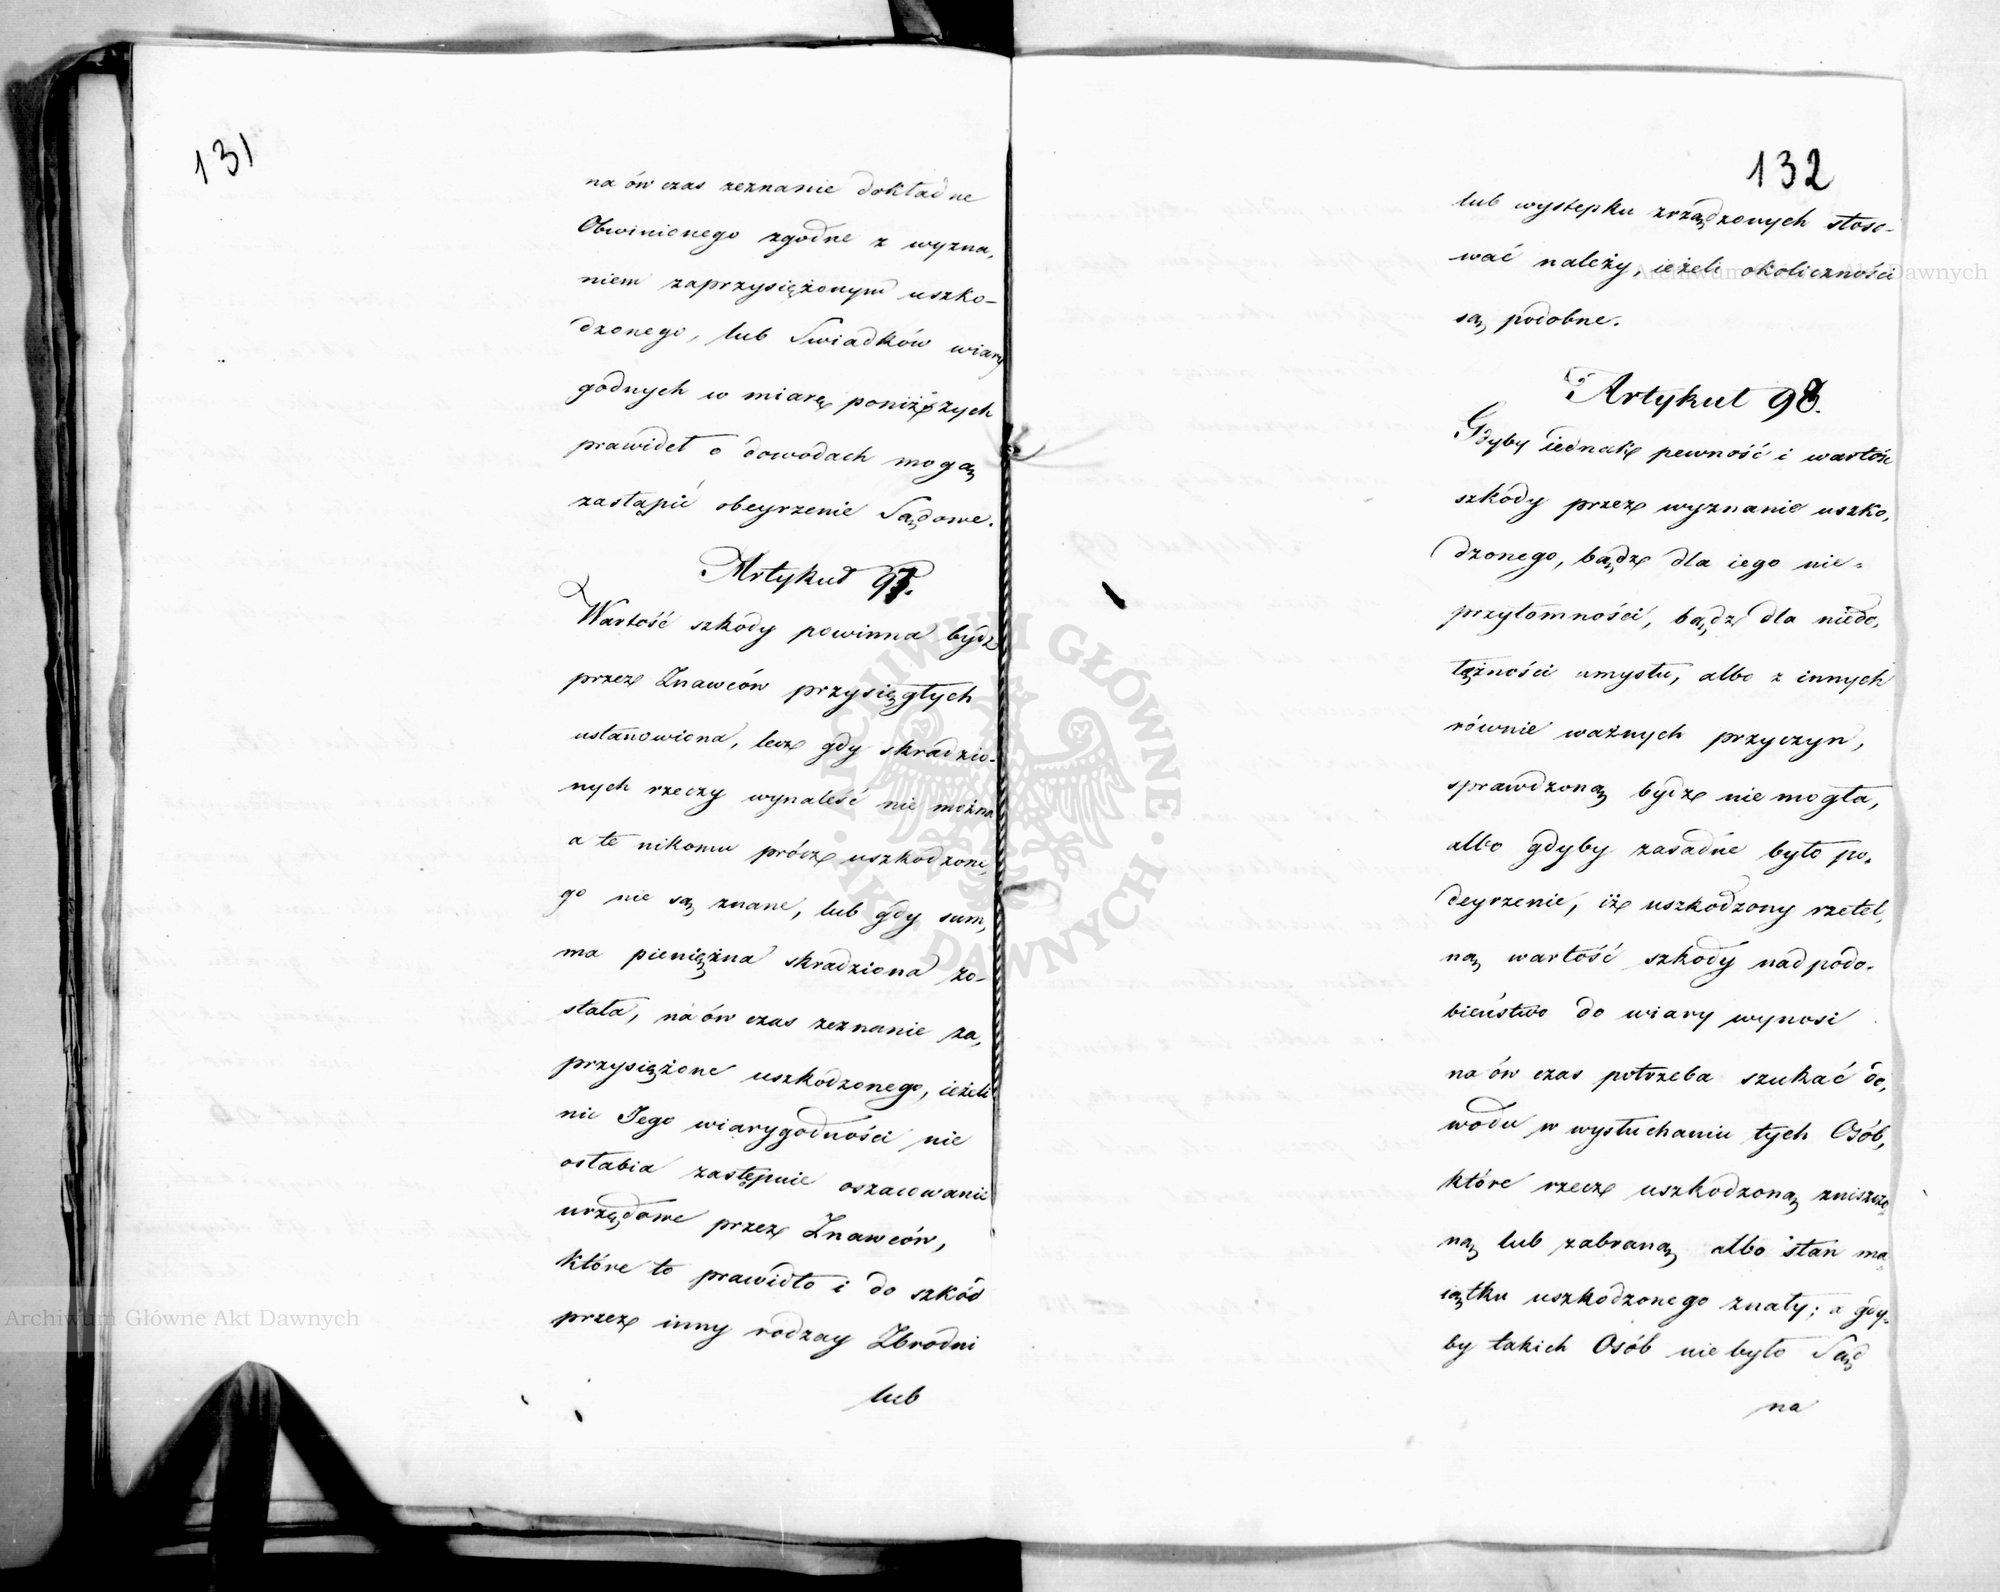 131
na ów czas zeznanie dokładne
Obwinionego zgodne z wyzna,
niem zaprzysiężonym uszko-
dzonego, lub Swiadków wiary
godnych w miarę poniższych
prawideł o dowodach mogą
zastąpić obeyrzenie Sądowe.
Artykuł 97.
Wartość szkody powinna bydz
przez Znawców przysięgłych
ustanowiona, lecz gdy skradzio-
nych rzeczy wynaleść nie można
a te nikomu prócz uszkodzone,
go nie są znane, lub gdy sum,
ma pieniężna skradziona zo-
stała, na ów czas zeznanie za,
przysiężone uszkodzonego, ieżeli
nic Jego wiarygodności nie
osłabia zastępuie oszacowanie
urzędowe przez Znawców,
które to prawidło i do szkód
przez inny rodzay Zbrodni
lub
132
lub występku zrządzonych stoso-
wać należy, ieżeli okoliczności
są podobne.
Artykuł 98.
Gdyby iednak pewność i wartość
szkody przez wyznanie uszko,
dzonego, bądz dla iego nie-
przytomności, bądz dla niedo,
łężności umysłu, albo z innych
równie ważnych przyczyn,
sprawdzoną bydz nie mogła,
albo gdyby zasadne było po,
deyrzenie, iż uszkodzony rzetel,
ną wartość szkody nad podo-
bieństwo do wiary wynosi
na ów czas potrzeba szukać do,
wodu w wysłuchaniu tych Osób,
które rzecz uszkodzoną zniszczo,
ną lub zabraną albo stan ma,
iątku uszkodzonego znały; a gdy-
by takich Osób nie było Sąd
na
Archiwum Główne Akt Dawnych
Archiwum Główne Akt Dawnych
ARCHIWUM GŁÓWNE · AKT DAWNYCH ·